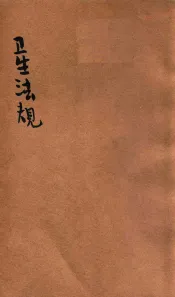 卫生法规